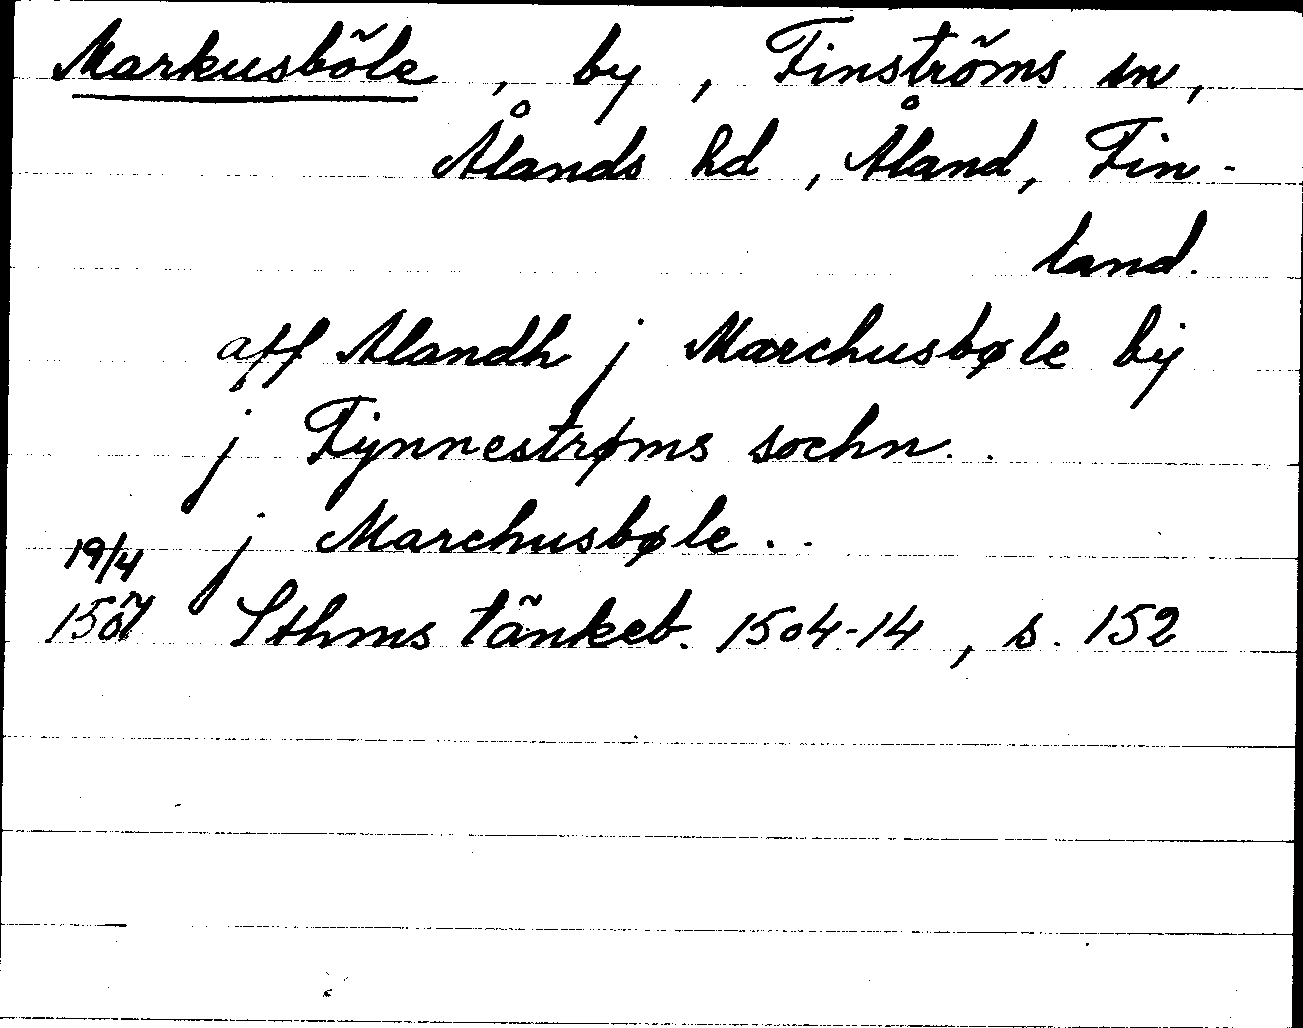 Markusböle, by, Finströms sn,
Ålands hd, Åland, Fin-
land.
aff Alandh j Marchusbøle by
j Fynnestrøms sochn..
j Marchusbøle..
19/4
1507 Sthms tänkeb. 1504-14, s. 152